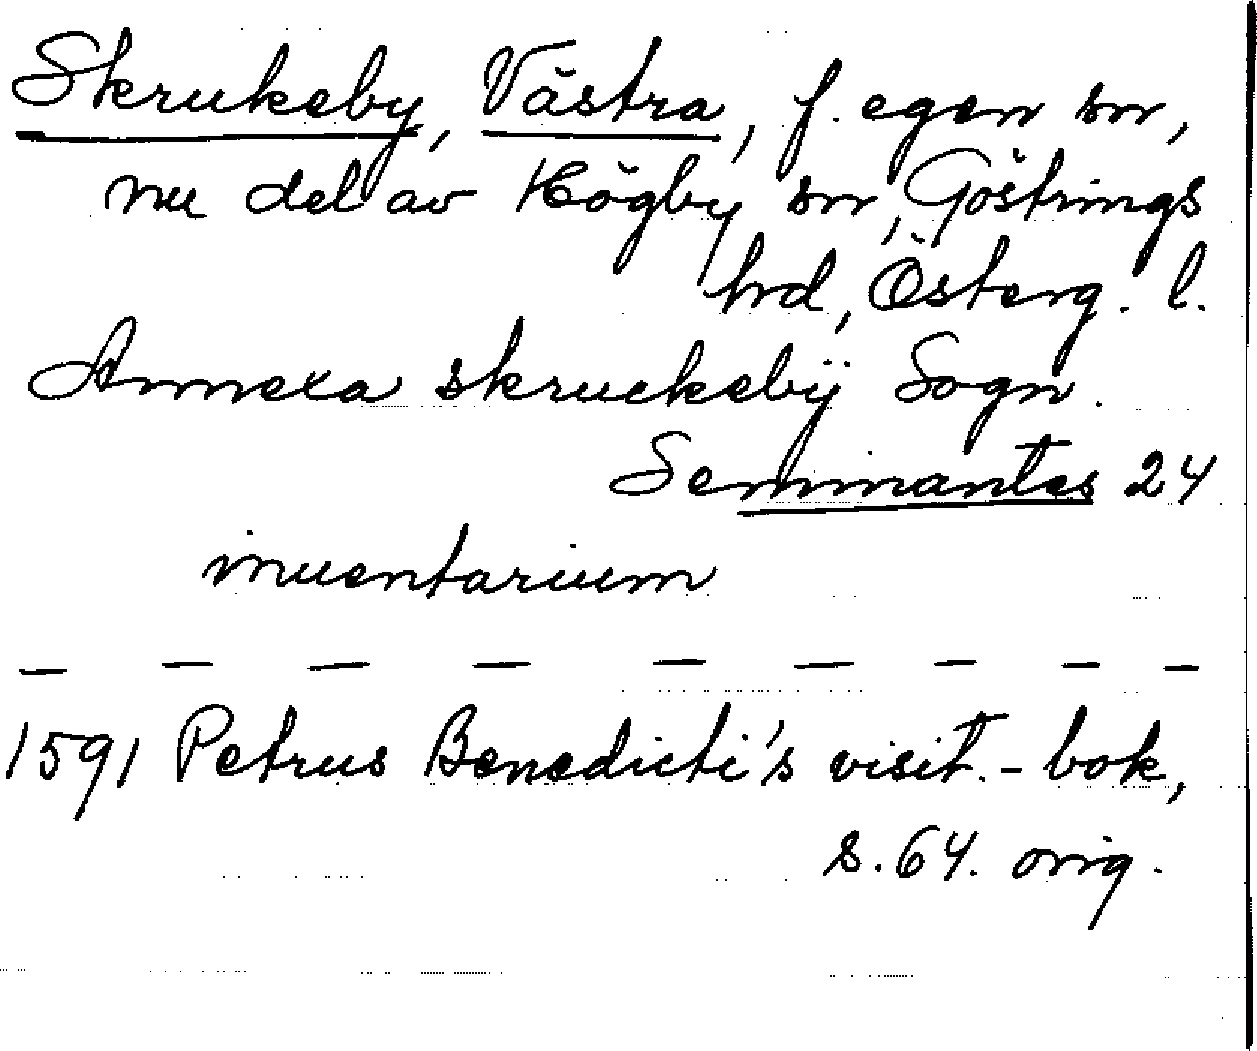 Skrukeby, Västra, f. egen sn,
nu del av Högby sn, Göstrings
hrd, Österg. l.
Annexa skruckebÿ Sogn.
Seminantes 24
inuentarium
— — — — — — — — —
1591 Petrus Benedicti's visit.-bok,
s. 64. orig.